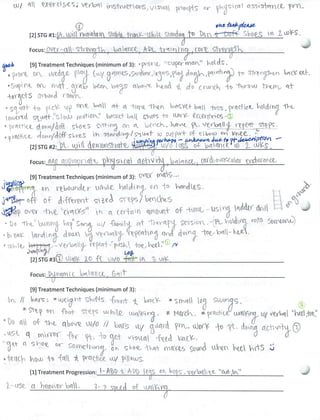 w/ all exercises; verbal instructions, visual prompts or physical assistance prn.
one task please
[2] STG #1: pt. will maintain stable trunk while standing to Don & doff shoes in 2 wks.
Focus: over-all strength, balance, ADL training, core strength
[9] Treatment Techniques (minimum of 3): • prone "superman" holds.
• prone on wedge play (w/ games, sandbox, legos, play dough, painting) to strengthen back ext.
• supine on mat, grab bean bags above head & do crunch to throw them at
targets around room.
• squat to pick up one ball at a time then basketball toss, practice holding the
lowered squat. "slow motion" basketball shots to work eccentrics.
• practice donn/doff shoes sitting on a bench, have pt. verbally repeat steps.
• practice donn/doff shoes in standing/squat w/ support of elbow on knee.
[2] STG #2: pt. will demonstrate w/o loss of balance in 2 wks.
Focus: age appropriate physical activity, balance, cardiovascular endurance
[9] Treatment Techniques (minimum of 3): over mats
on rebounder while holding on to handles.
off of different sized steps/benches
over the "cracks" in a certain amount of time - using ladder on ground
• Do the "bunny hop" song w/ family at therapy session. - Pt. holding onto someone
landing down by verbally repeating and doing toe-ball-heel.
• while verbally repeat "push! toe, heel."
[2] STG #3: walk 20 ft w/o in 2 wk.
Focus: Dynamic balance, Gait
[9] Treatment Techniques (minimum of 3):
In // bars: • weight shifts front & back • small leg swings.
• step on foot steps while walking. • March. • practice walking, w/ verbal "heel, toe"
• Do all of the above w/o // bars w/ guard prn. work to pt. doing activity
• use a mirror for pt. to get visual feed back.
• get a shoe or something on shoe that makes sound when heel hits
• teach how to fall & practice w/ pillows.
[1] Treatment Progression:
2 - use a heavier ball.